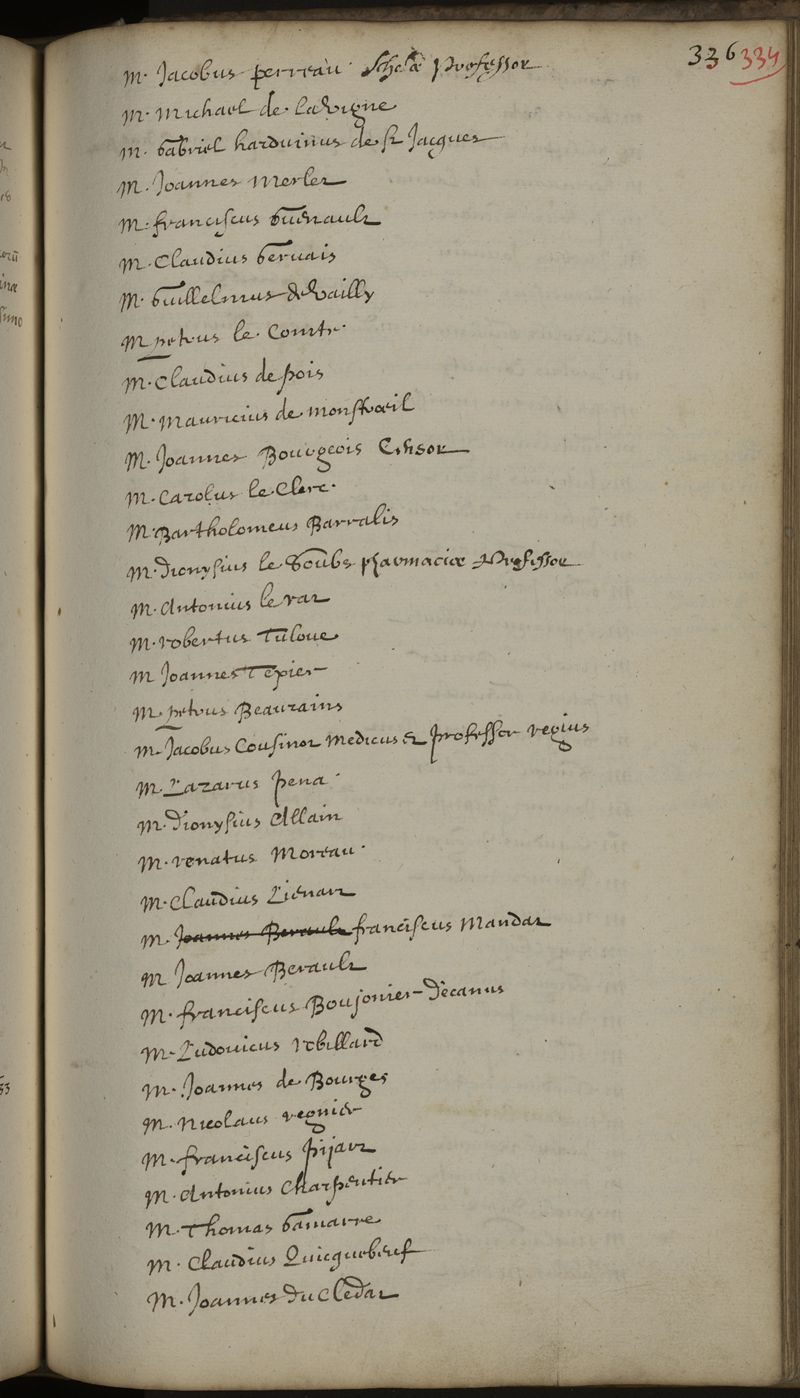 336 334
M. Jacobus perreau Scholæ Professor
M. Michael de la Vigne
M. Gabriel harduinus de St Jacques
M. Joannes Merlet
M. franciscus Guenault
M. Claudius Gervais
M. Guillelmus de Vailly
M petrus le Comte.
M. Claudius de pois
M. Mauricius de Monstreil
M. Joannes Bourgeois Censor
M. Carolus le Clerc.
M. Bartholomeus Barralis
M. Dionysius le Soubs pharmaciæ Professor
M. Antonius le rat
M. robertus Tuloue
M Joannes Tepier
M. petrus Beaurains
M. Jacobus Cousinot Medicus & professor regius
M. Lazarus pena.
M. Dionysius Allain
M. renatus Moreau.
M. Claudius Lienart
M. Joannes Berault franciscus Mandat
M Joannes Berault
M. franciscus Boujonier Decanus
M. Ludovicus robillard
M. Joannes de Bourges
M. Nicolaus regnier
M. franciscus pijart
M. Antonius Charpentier
M. Thomas Gamarre
M. Claudius Quicquebeuf
M. Joannes du Cledat